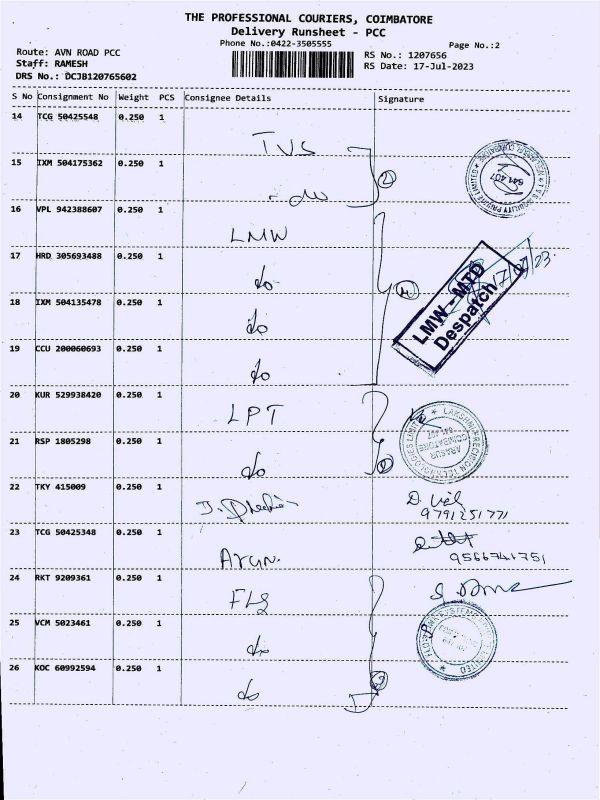 THE PROFESSIONAL COURIERS, COIMBATORE
Delivery Runsheet - PCC
Phone No.:0422-3505555
Page No.:2
Route: AVN ROAD PCC
Staff: RAMESH
DRS No.: DCJB120765602
RS No.: 1207656
RS Date: 17-Jul-2023
S No Consignment No Weight PCS Consignee Details Signature
14 TCG 50425548 0.250 1
TVS
15 IXM 504175362 0.250 1
- do
2
641 407
16 VPL 942388607 0.250 1
LMW
17 HRD 305693488 0.250 1
do
4
LMW - MTD
Despatch
18 IXM 504135478 0.250 1
do
19 CCU 200060693 0.250 1
do
20 KUR 529938420 0.250 1
LPT
LAKSHMI PRECISION TECHNOLOGIES LIMITED
ARASUR
COIMBATORE
641 407
21 RSP 1805298 0.250 1
do
22 TKY 415009 0.250 1
9791251771
23 TCG 50425348 0.250 1
Arun.
9566741751
24 RKT 9209361 0.250 1
FLS
25 VCM 5023461 0.250 1
do
26 KOC 60992594 0.250 1
do
3